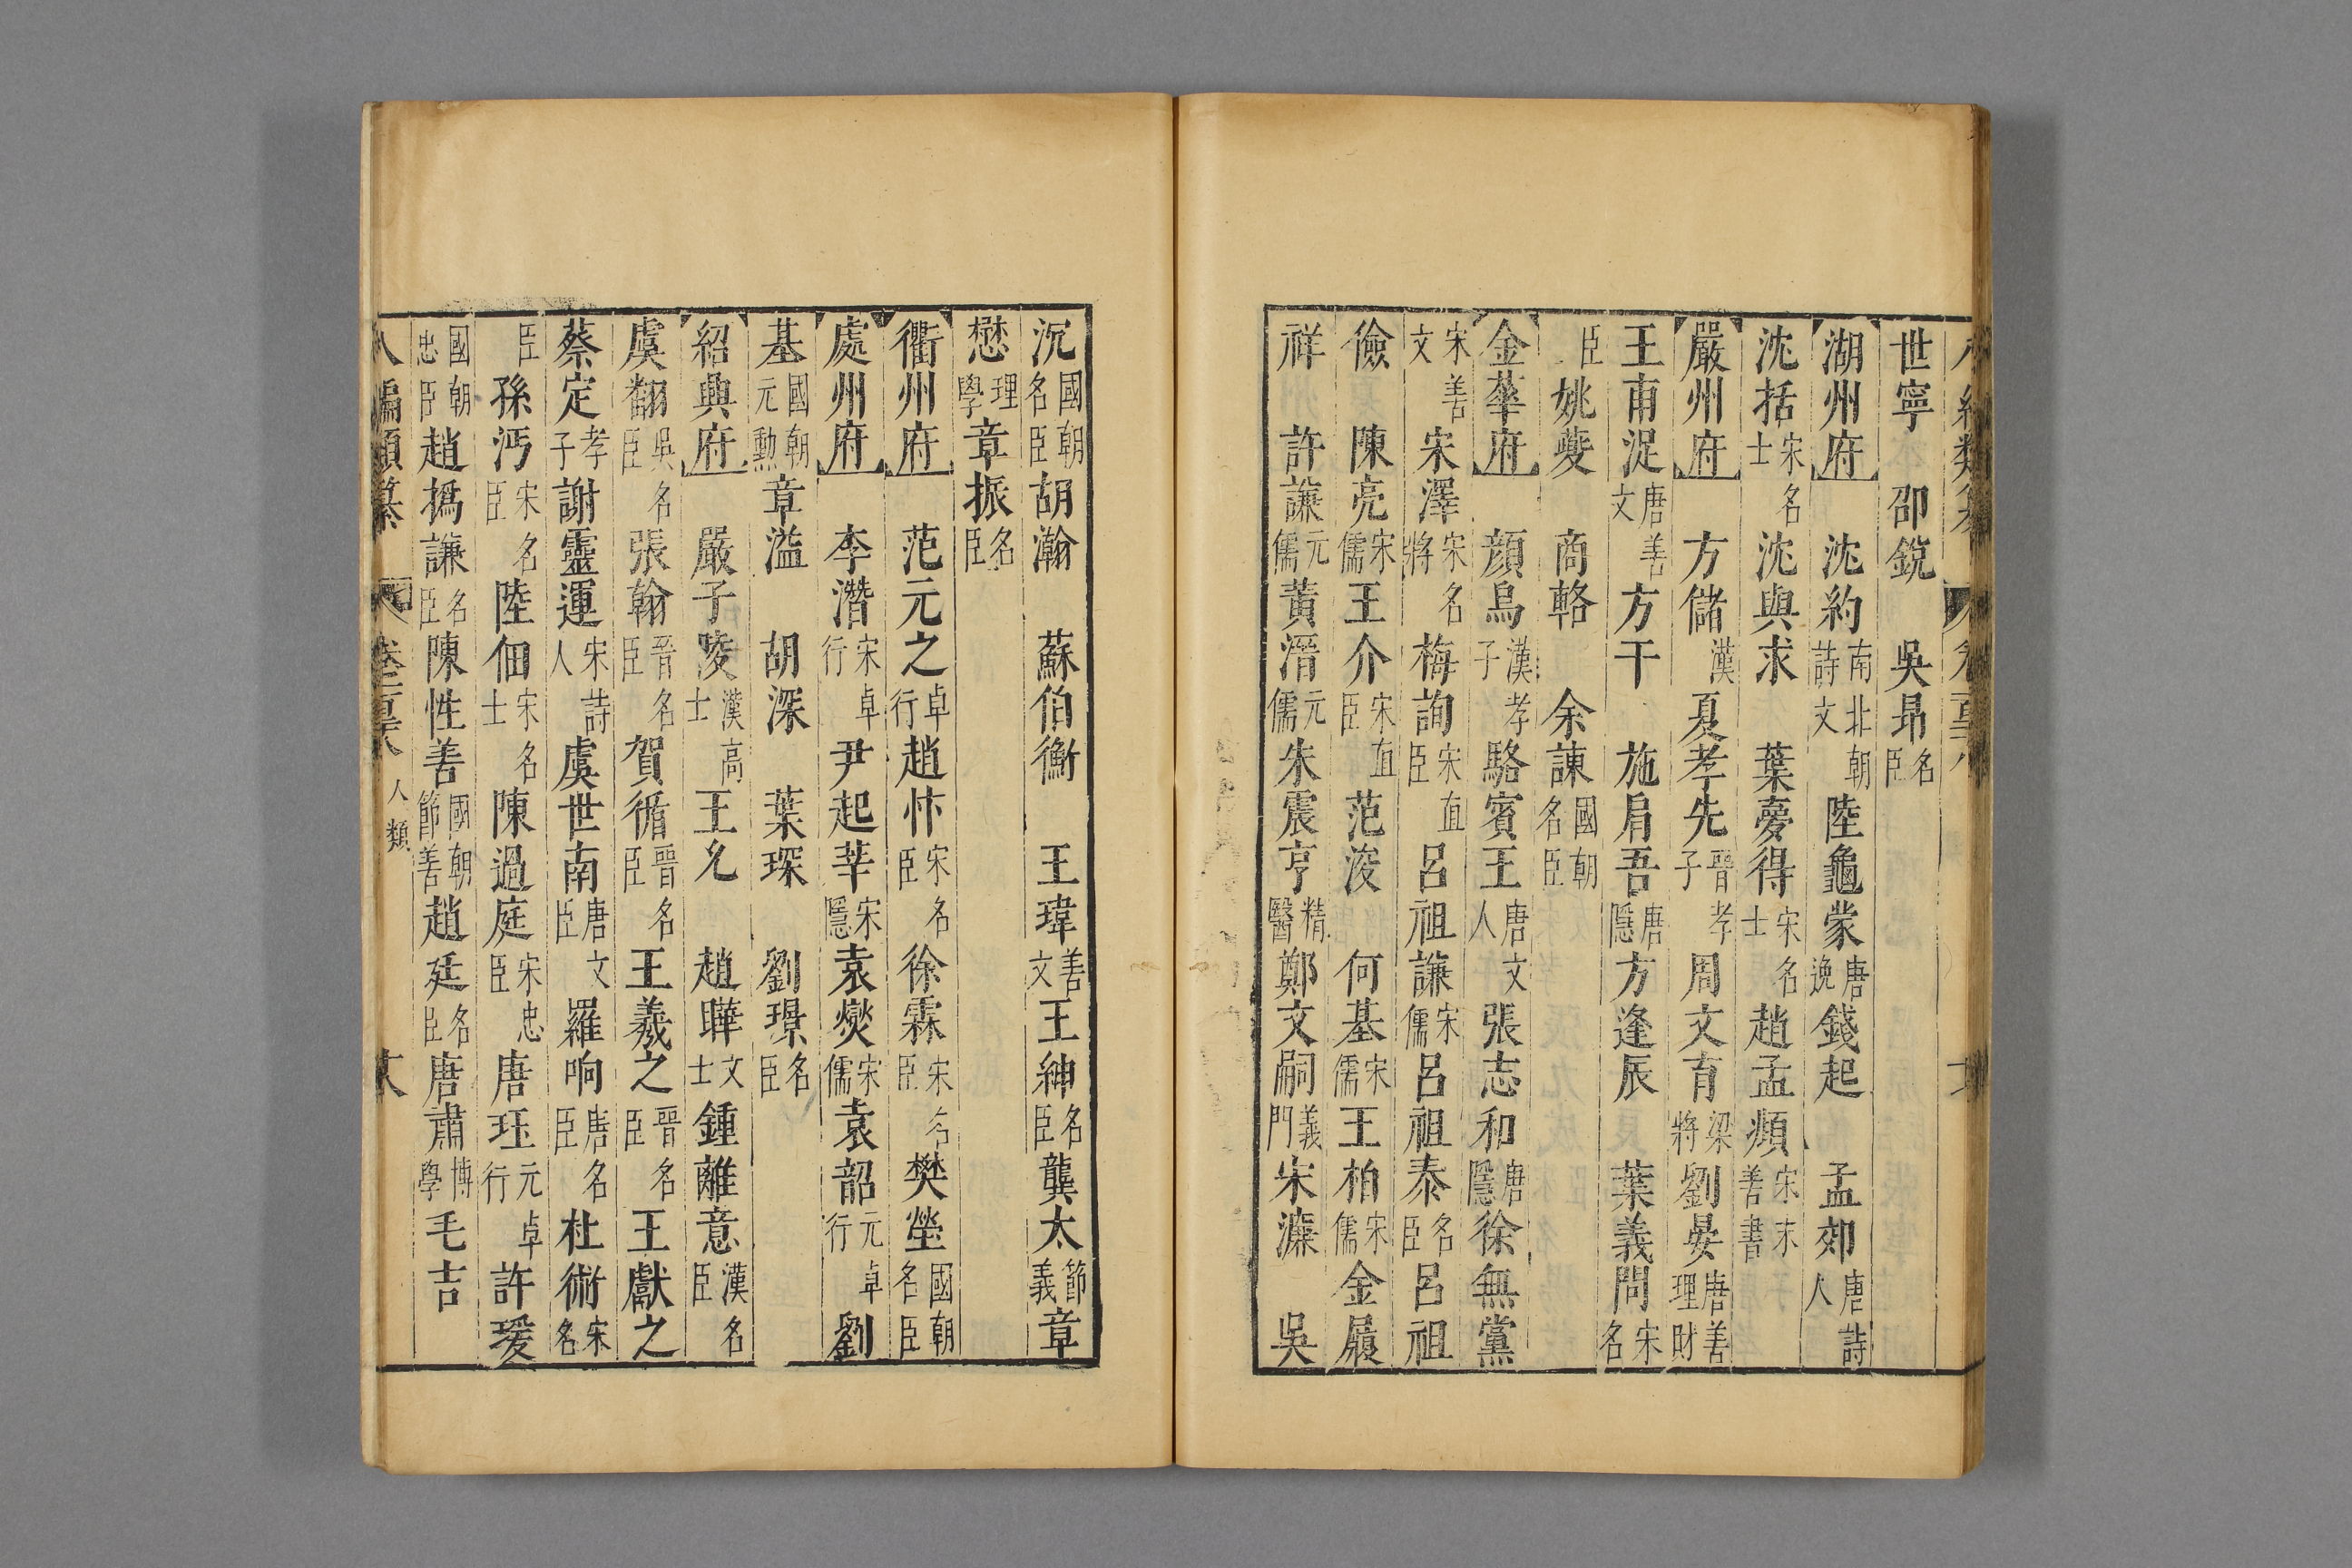 世寧 邵銳 吳昻名臣
湖州府 沈約南北朝詩文 陸龜蒙唐逸 錢起 孟郊唐詩人
沈括宋名士 沈與求 葉夢得宋名士 趙孟頫宋末善書
嚴州府 方儲漢 夏孝先晉孝子 周文育梁將 劉晏唐善理財
王甫浞唐善文 方干 施肩吾唐隱 方逢辰 葉義問宋名
臣 姚夔 商輅 余諫國朝名臣
金華府 顏烏漢孝子 駱賓王唐文人 張志和唐隱 徐無黨
宋善文 宋澤宋名將 梅詢宋直臣 呂祖謙宋儒 呂祖泰名臣 呂祖
儉 陳亮宋儒 王介宋直臣 范浚 何基宋儒 王柏宋儒 金履
祥 許謙元儒 黃溍元儒 朱震亨精醫 鄭文嗣義門 宋濂 吳
沉國朝名臣 胡瀚 蘇伯衡 王瑋善文 王紳名臣 龔太節義 章
懋理學 章振名臣
衢州府 范元之卓行 趙忭宋名臣 徐霖宋名臣 樊瑩國朝名臣
處州府 李潛宋卓行 尹起莘宋隱 袁燮宋儒 袁韶元卓行 劉
基國朝元勳 章溢 胡深 葉琛 劉璟名臣
紹興府 嚴子陵漢高士 王允 趙曄文士 鍾離意漢名臣
虞翻吳名臣 張翰晉名臣 賀循晉名臣 王羲之晉名臣 王獻之
蔡定孝子 謝靈運宋詩人 虞世南唐文臣 羅响唐名臣 杜術宋名
臣 孫沔宋名臣 陸佃宋名士 陳過庭宋忠臣 唐珏元卓行 許瑗
國朝忠臣 趙撝謙名臣 陳性善國朝節善 趙廷名臣 唐肅博學 毛吉
八編類纂 卷 人類